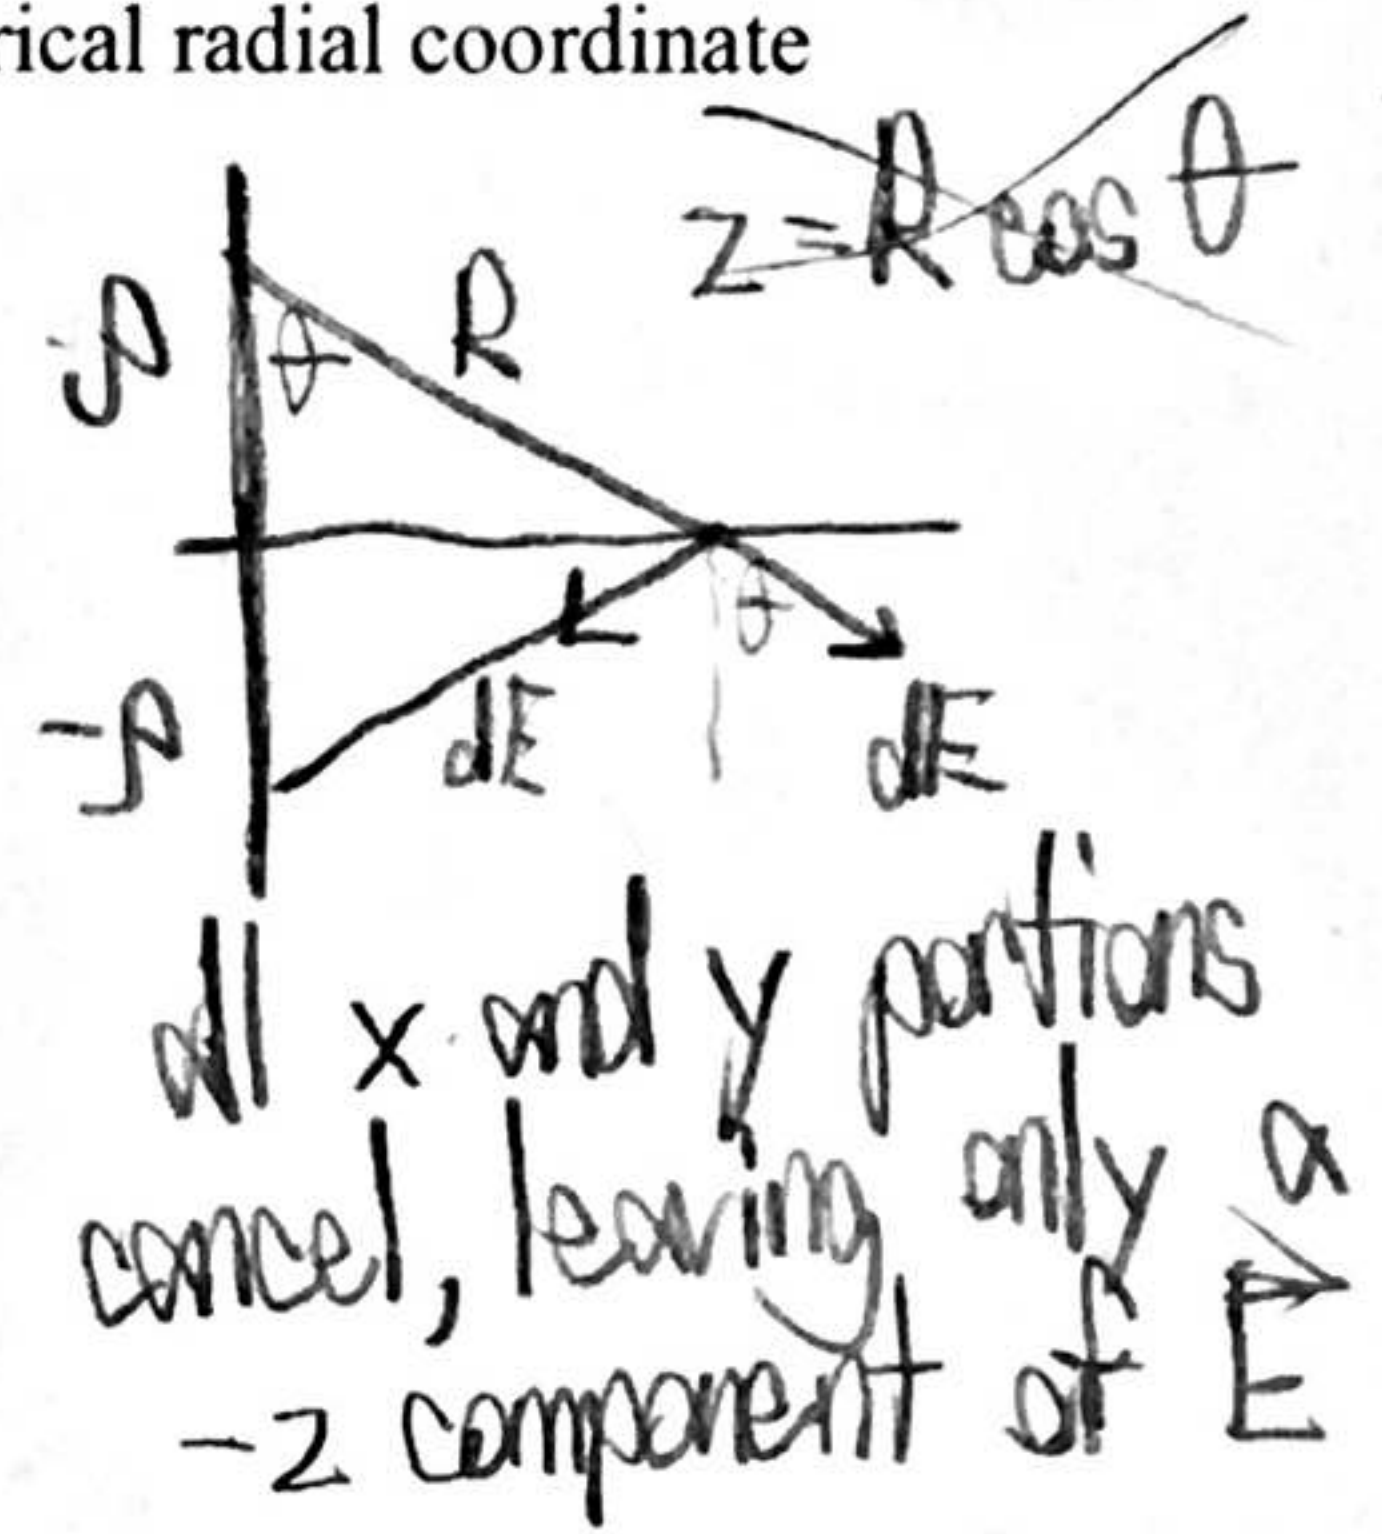 rical radial coordinate
z = R cos θ
ρ
θ
R
θ
-ρ
dE
dE
all x and y portions
cancel, leaving only a
-z component of E⃗